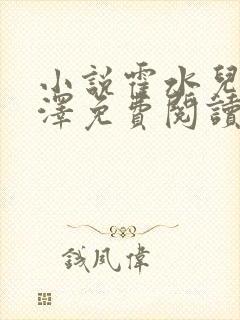 小說霍水兒
澤免費閱讀
鐵風偉